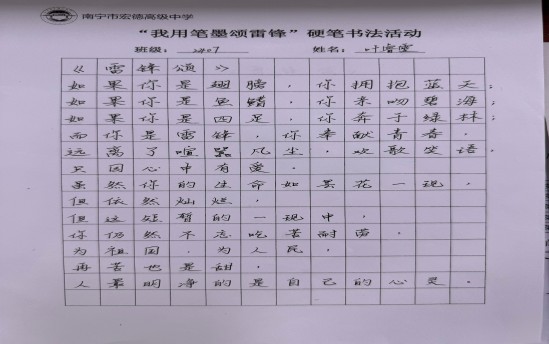 南宁市宏德高级中学
“我用笔墨颂雷锋”硬笔书法活动
班级： 2407 姓名： 叶
《雷锋颂》
如果你是翅膀，你拥抱蓝天；
如果你是鱼鳍，你亲吻碧海；
如果你是四足，你奔于绿林；
而你是雷锋，你奉献青春，
远离了喧嚣凡尘，欢歌笑语，
只因心中有爱。
虽然你的生命如昙花一现，
但依然灿烂，
但这短暂的一现中，
你仍然不忘吃苦耐劳，
为祖国，为人民，
再苦也是甜，
人最明净的是自己的心灵。